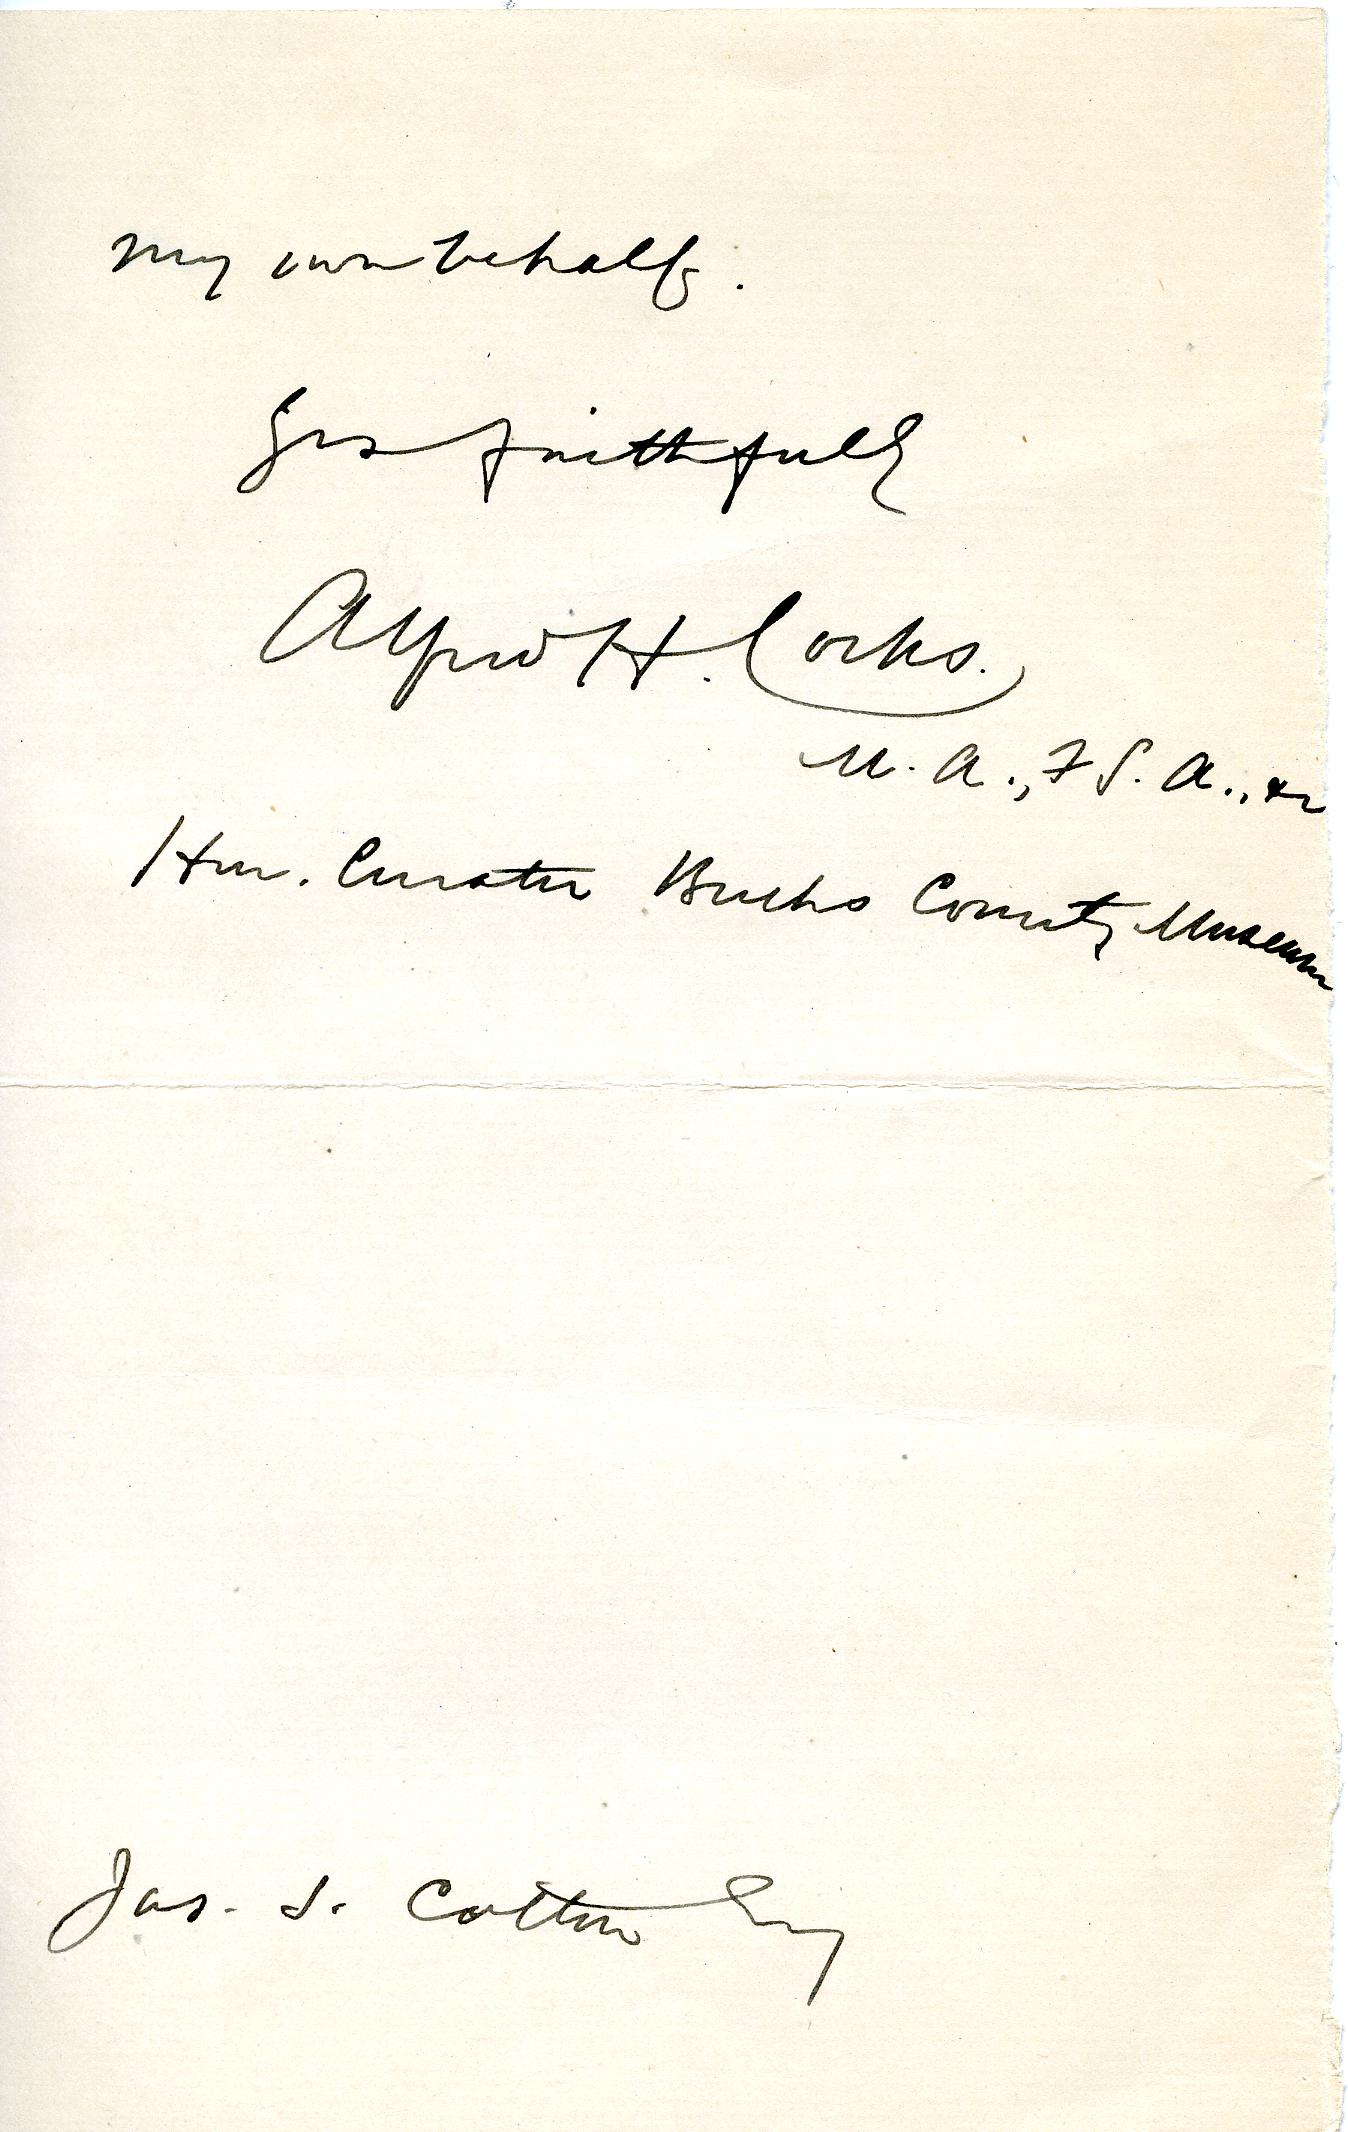 my own behalf.
Yrs faithfully
Alfred H. Cocks.
M. A., F S. A., &c
Hon. Curator Bucks County Museum
Jas. S. Cotton Esq